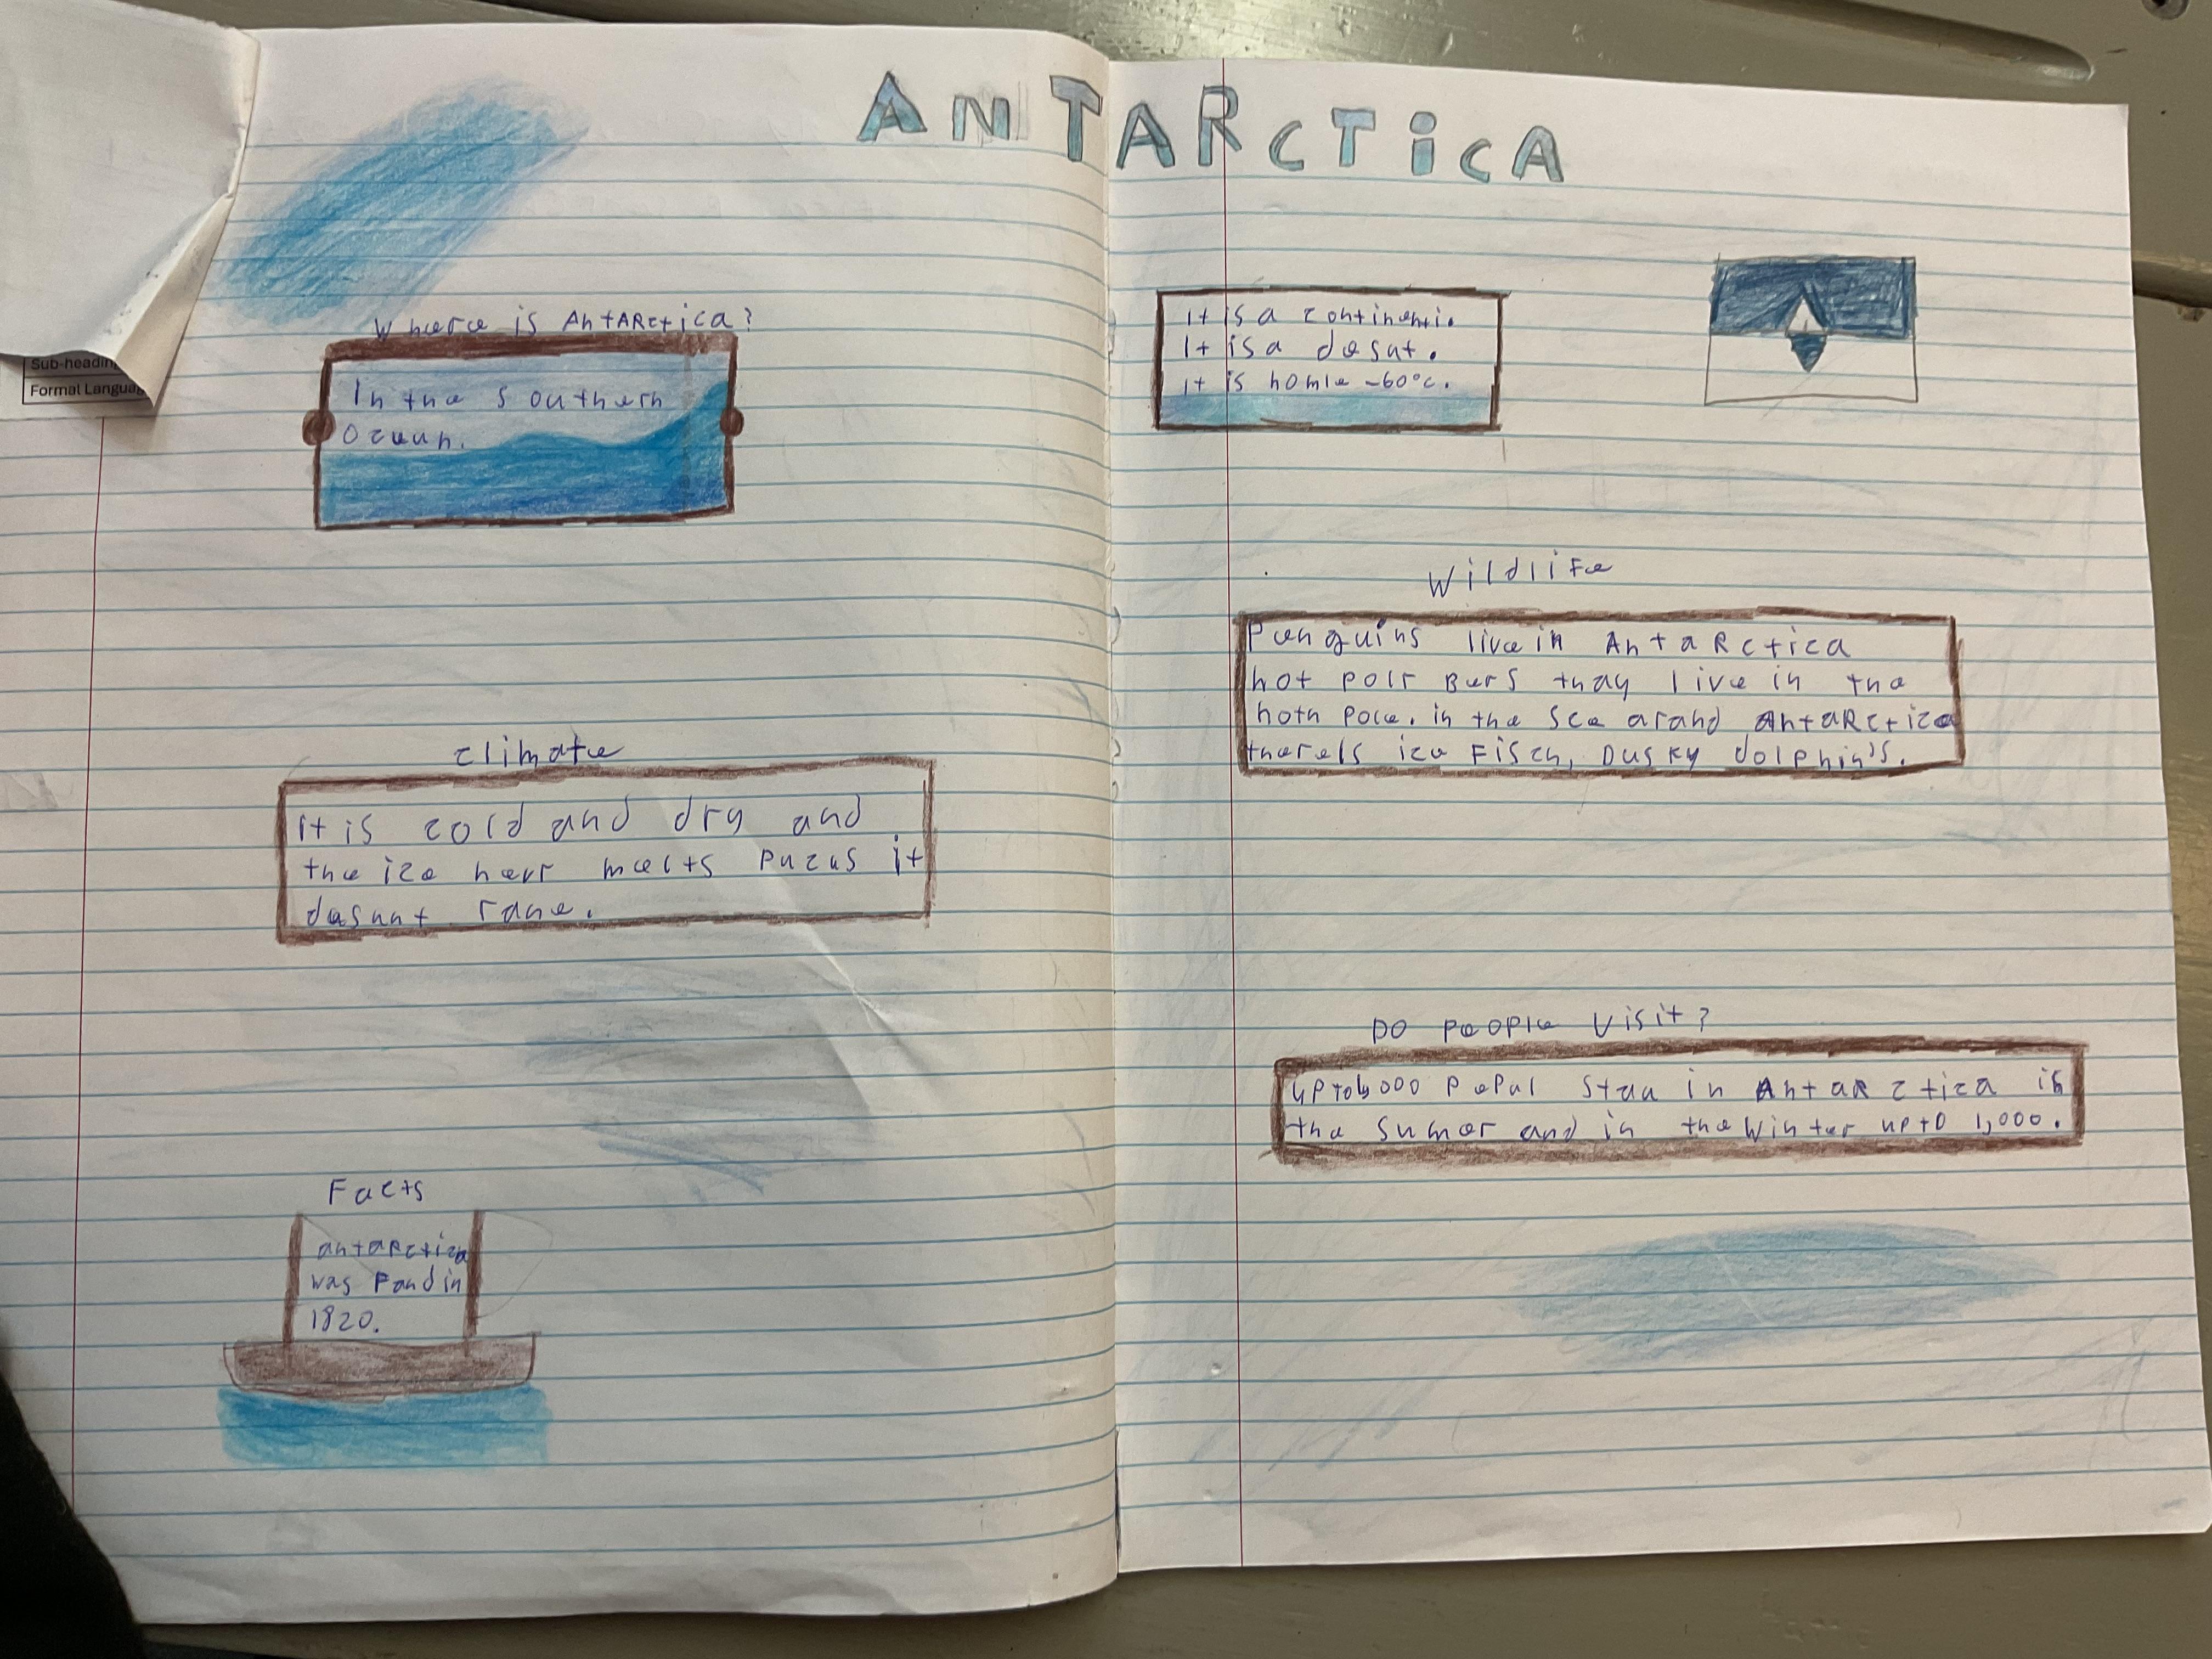 ANTARCTiCA
Sub-headin
Formal Langua
Where is AntARctica?
In the Southern
Oceun.
climate
it is cold and dry and
the ice hevr melts pucus it
dasunt rane.
Facts
antarctica
was Fand in
1820.
it is a continent.
It is a desut.
it is homle -60°c.
Wildlife
Penguins live in AntaRctica
not polr Bers thay live in the
noth Pole. in the See arand AntaRctica
therels ice Fisch, Dusky dolphins.
Do People Visit?
up to 000 Pepul Stau in AntaRctica in
the Sumer and in the Winter up to 1,000.